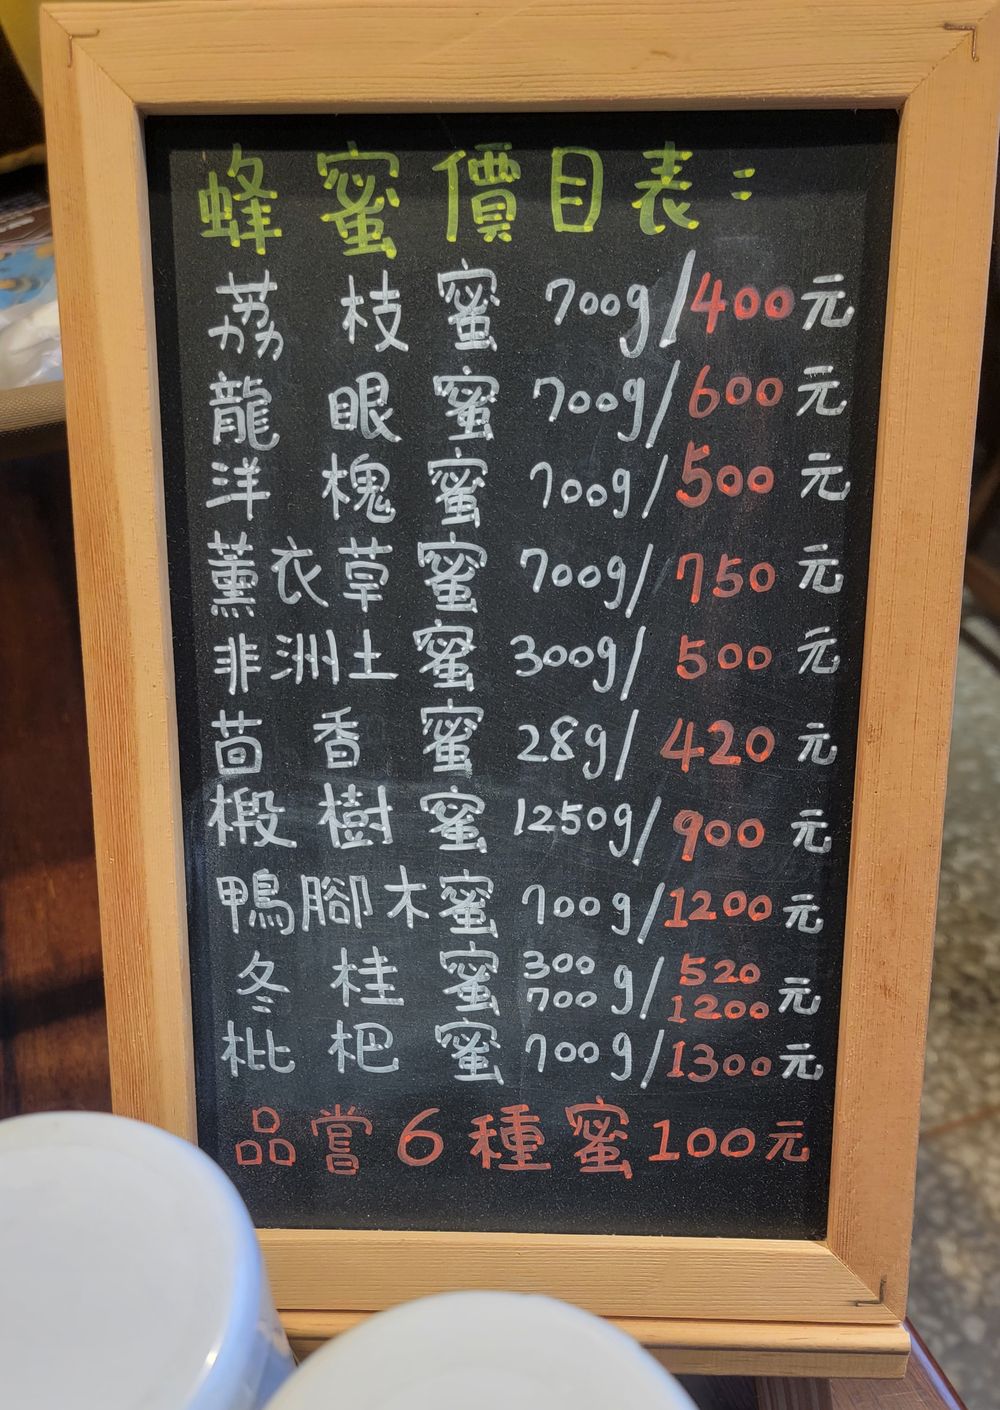 蜂蜜價目表:
荔枝蜜 700g/400元
龍眼蜜 700g/600元
洋槐蜜 700g/500元
薰衣草蜜 700g/750元
非洲土蜜 300g/500元
茴香蜜 28g/420元
椴樹蜜 1250g/900元
鴨腳木蜜 700g/1200元
冬桂蜜 300 700 g/520 1200元
枇杷蜜 700g/1300元
品嘗6種蜜100元